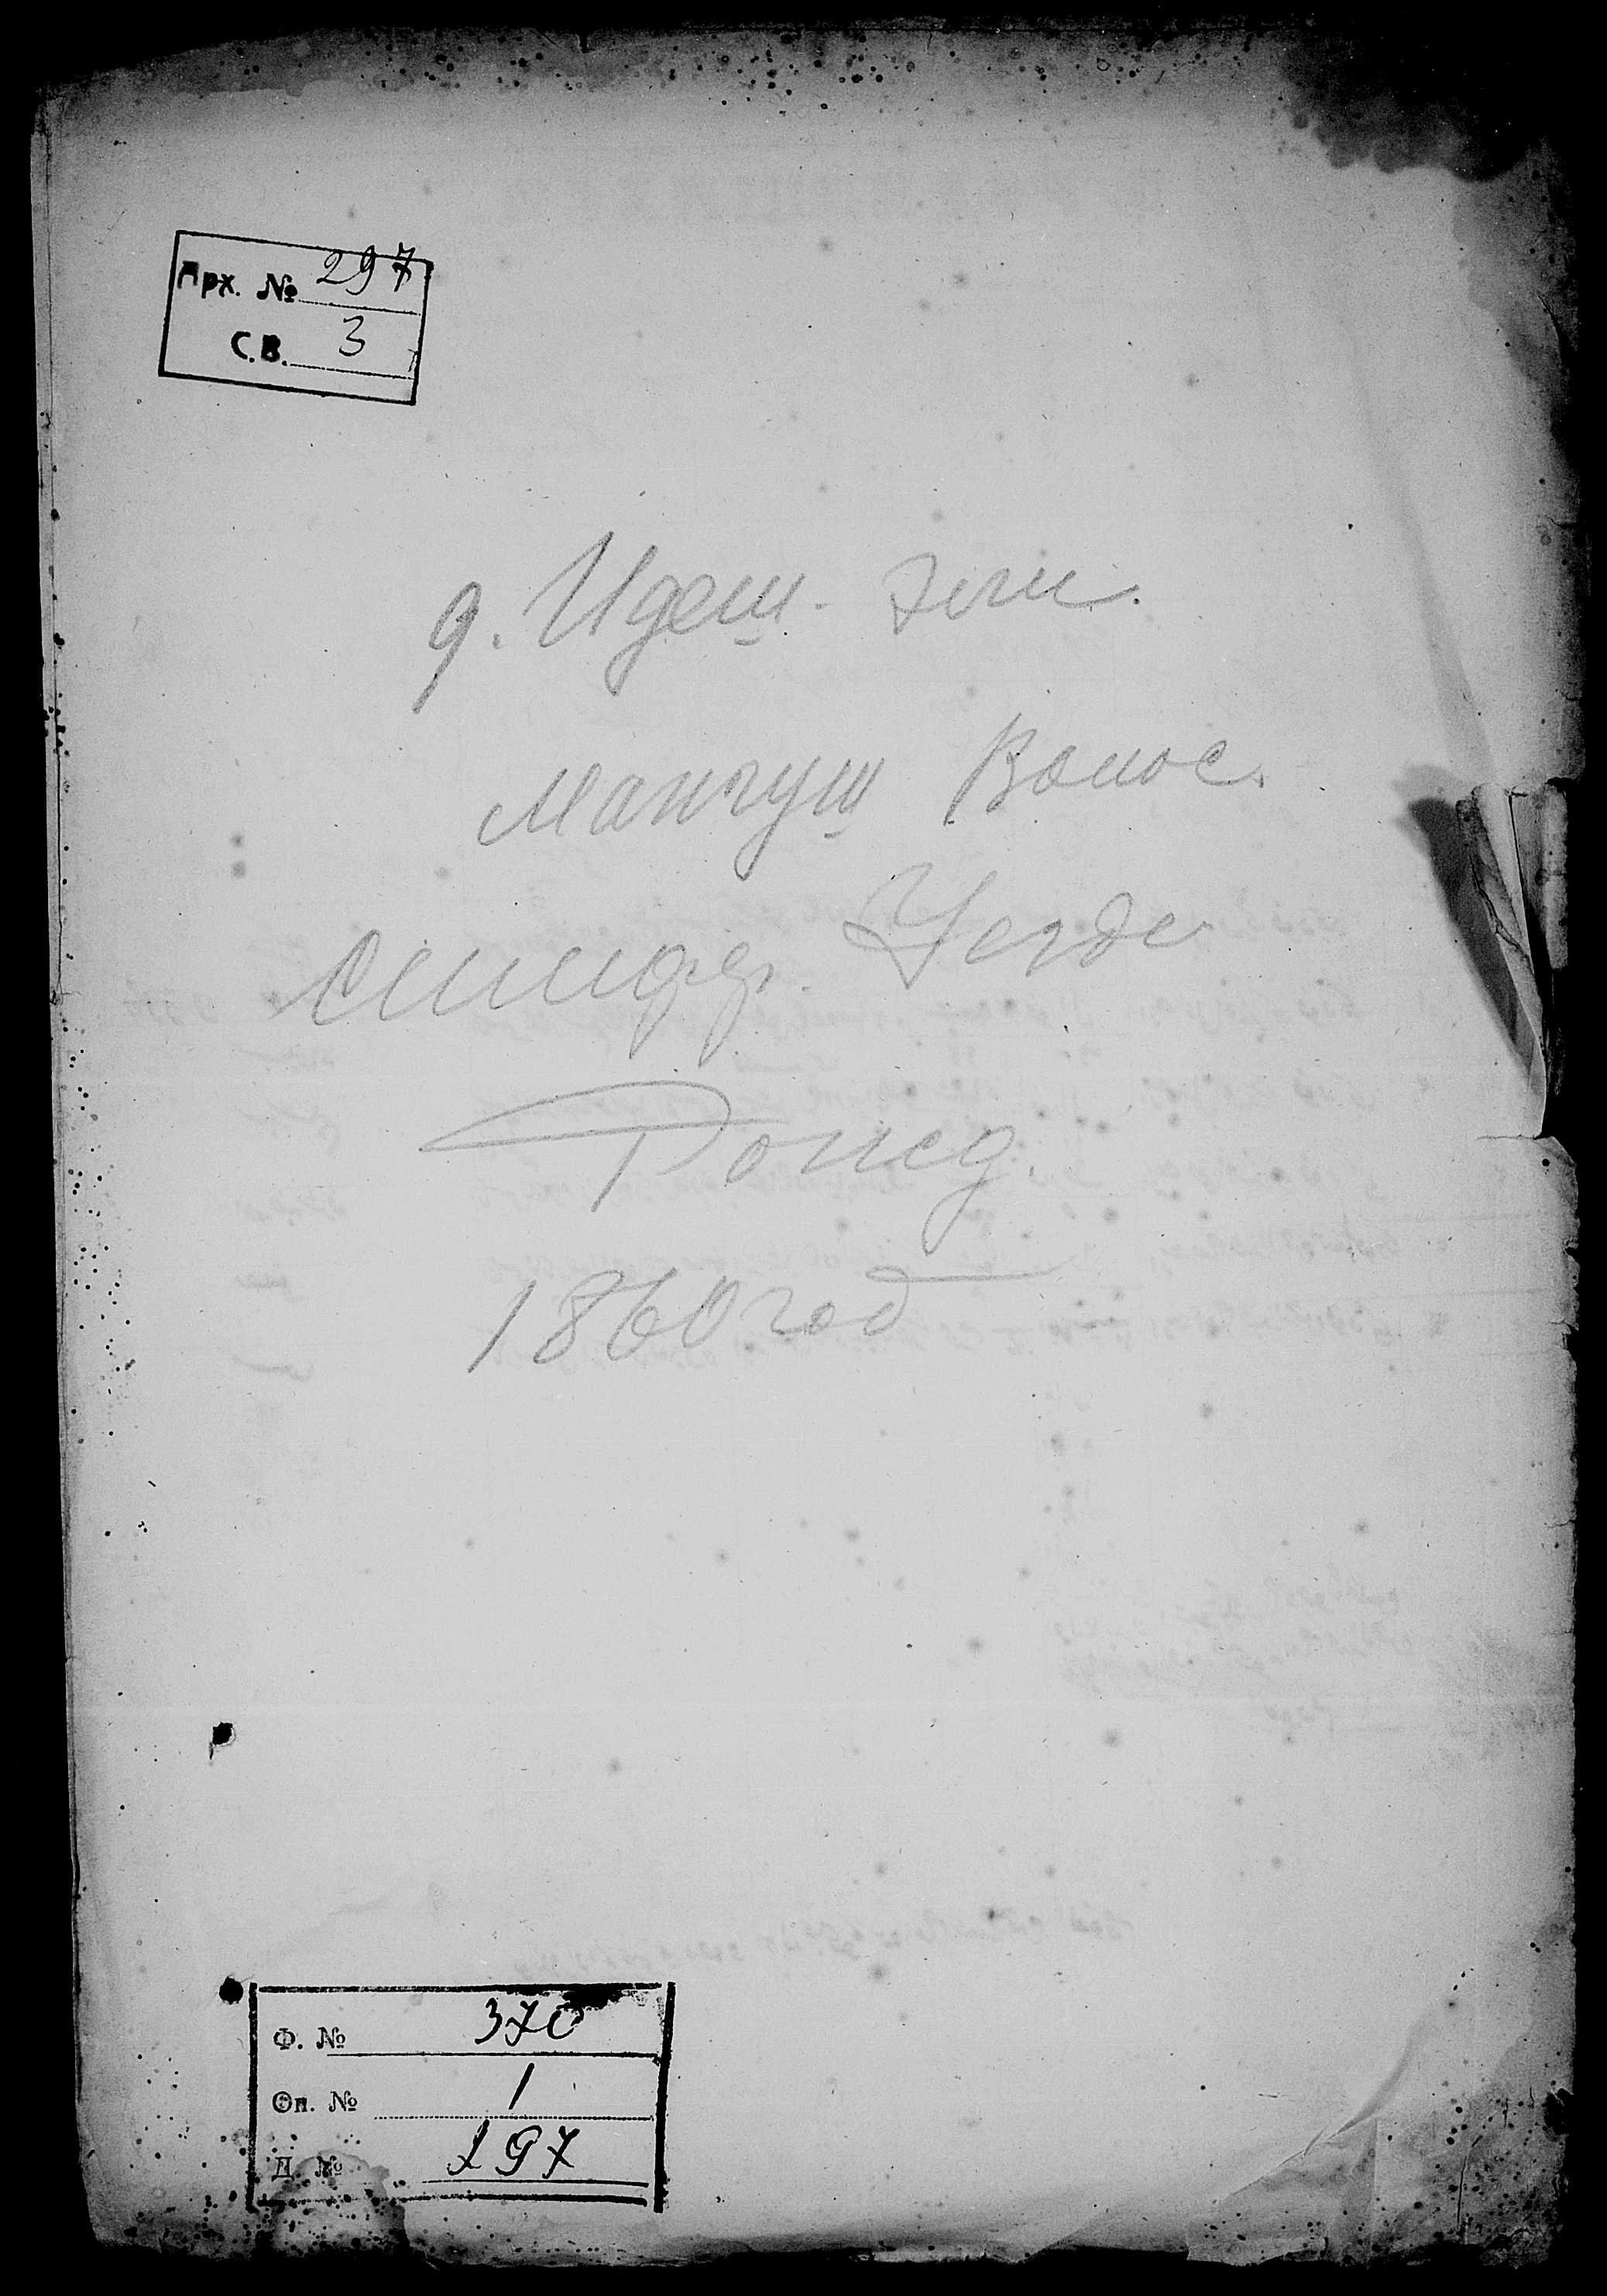 Арх. № 297
С.В. 3
д. Идеш. Эли.
Мангуш Волос.
Симфер. Уезда
Рожед.
1860 год
Ф. № 370
Оп. № 1
Д. № 197